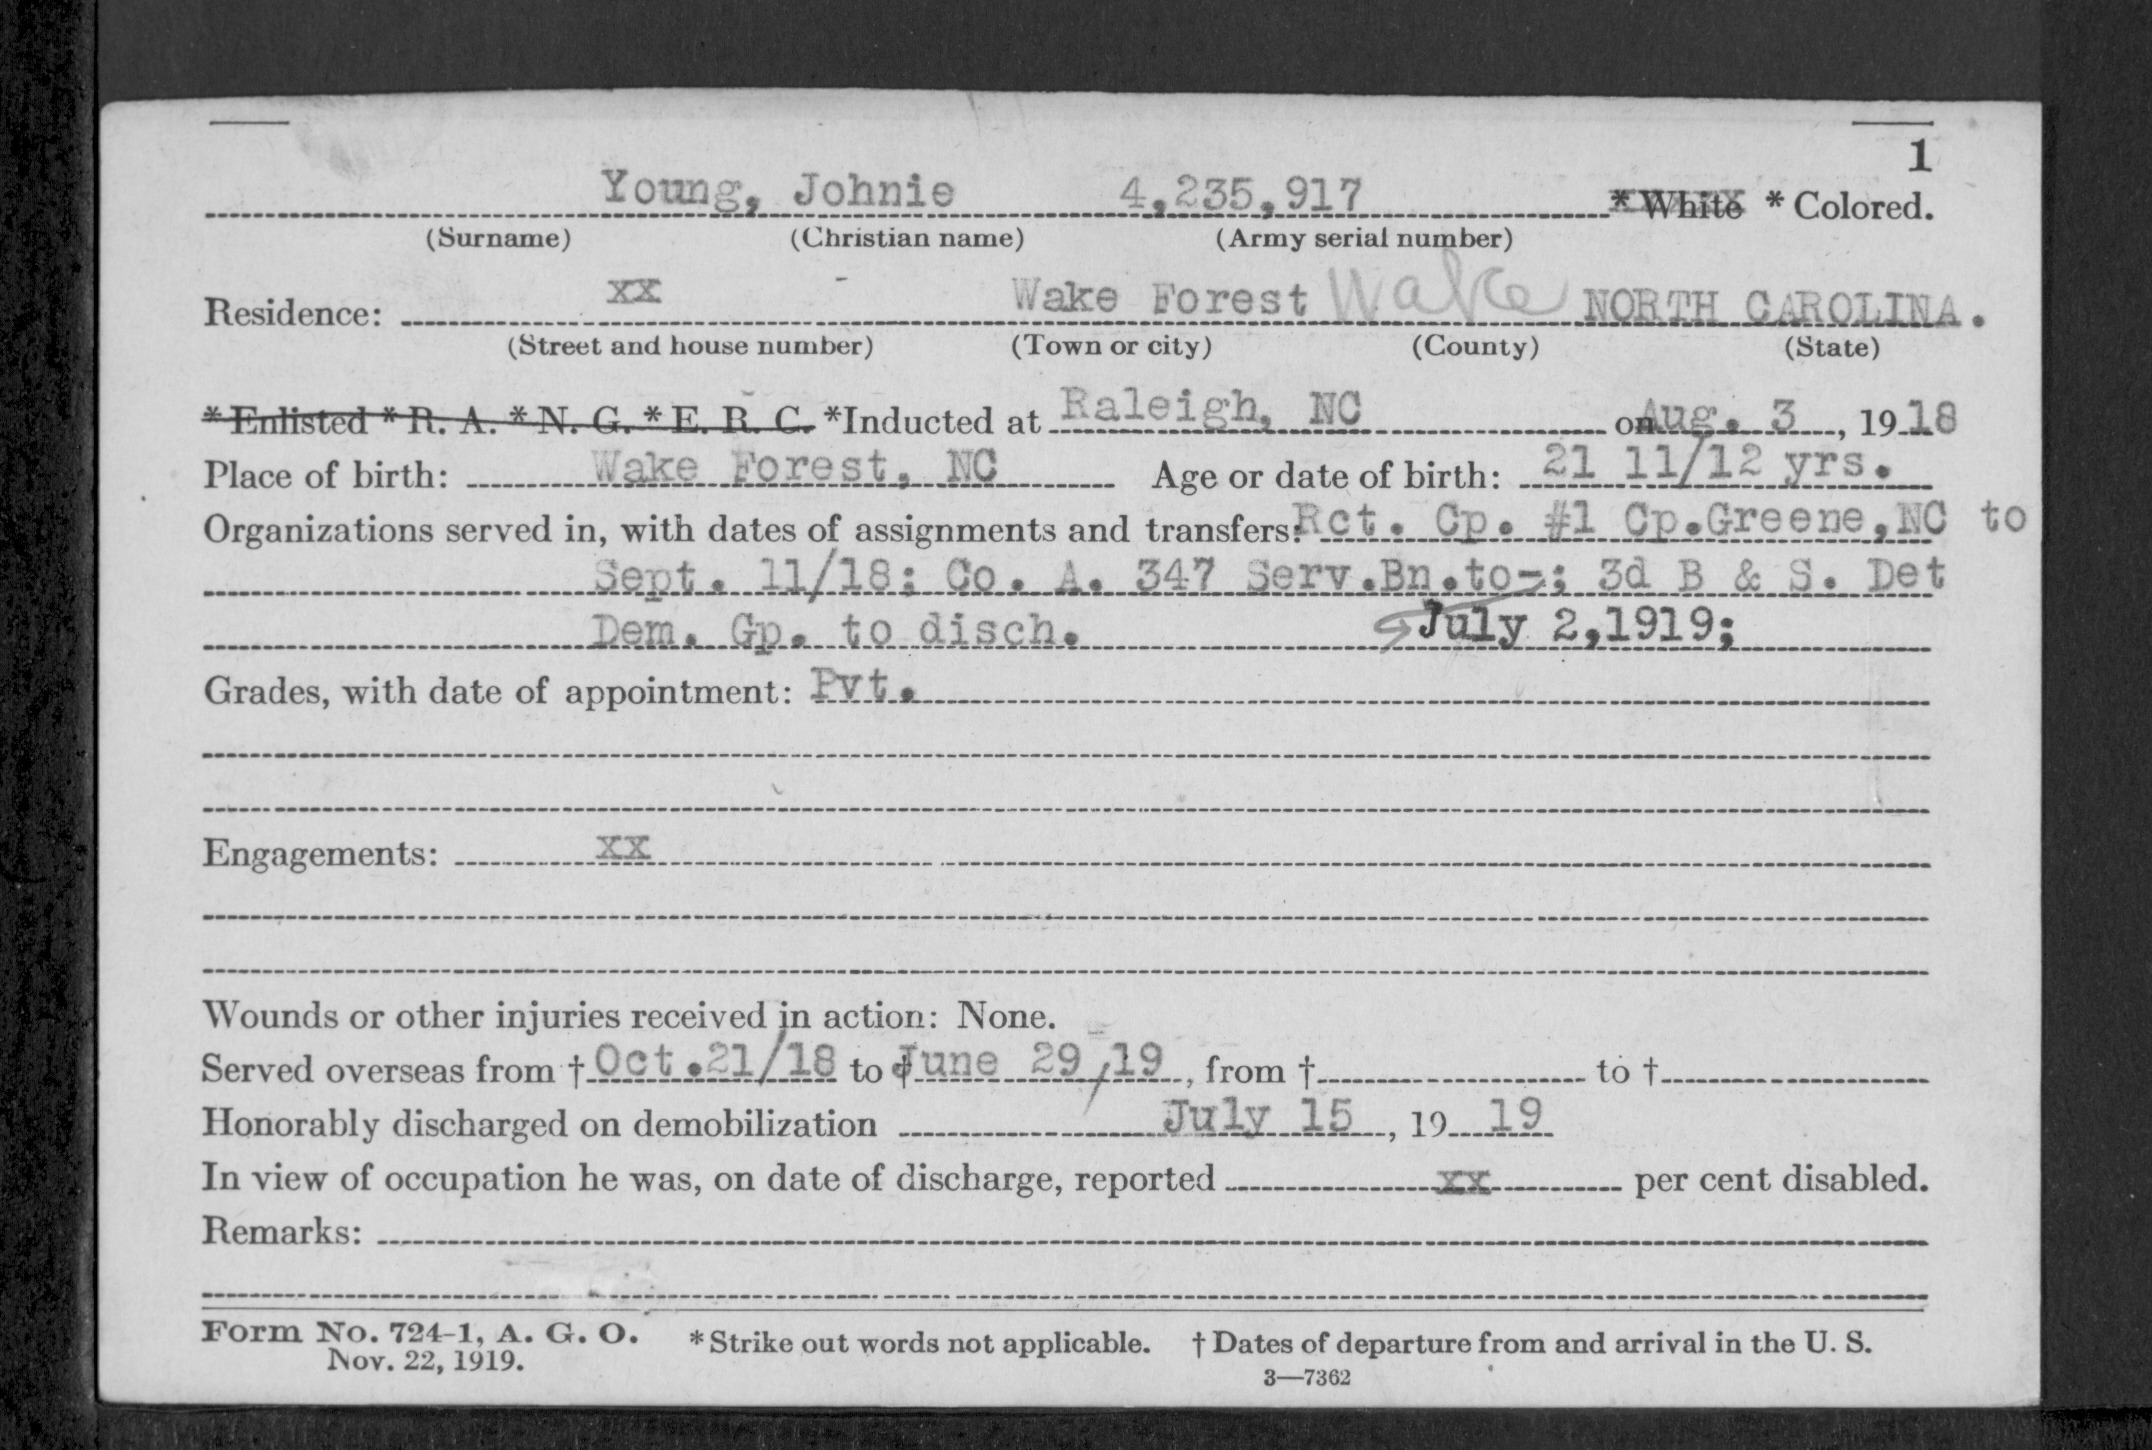 1
Young, Johnie 4,235,917 * White * Colored.
(Surname) (Christian name) (Army serial number)
Residence: xx Wake Forest Wake NORTH CAROLINA.
(Street and house number) (Town or city) (County) (State)
* Enlisted * R. A. * N. G. * E. R. C. *Inducted at Raleigh, NC on Aug. 3, 19 18
Place of birth: Wake Forest, NC Age or date of birth: 21 11/12 yrs.
Organizations served in, with dates of assignments and transfers: Rct. Cp. #1 Cp.Greene,NC to
Sept. 11/18; Co. A. 347 Serv.Bn.to-; 3d B & S. Det
Dem. Gp. to disch. July 2,1919;
Grades, with date of appointment: Pvt.
Engagements: xx
Wounds or other injuries received in action: None.
Served overseas from † Oct.21/18 to † June 29/19, from † to †
Honorably discharged on demobilization July 15, 19 19
In view of occupation he was, on date of discharge, reported xx per cent disabled.
Remarks:
Form No. 724-1, A. G. O. * Strike out words not applicable. † Dates of departure from and arrival in the U. S.
Nov. 22, 1919.
3—7362